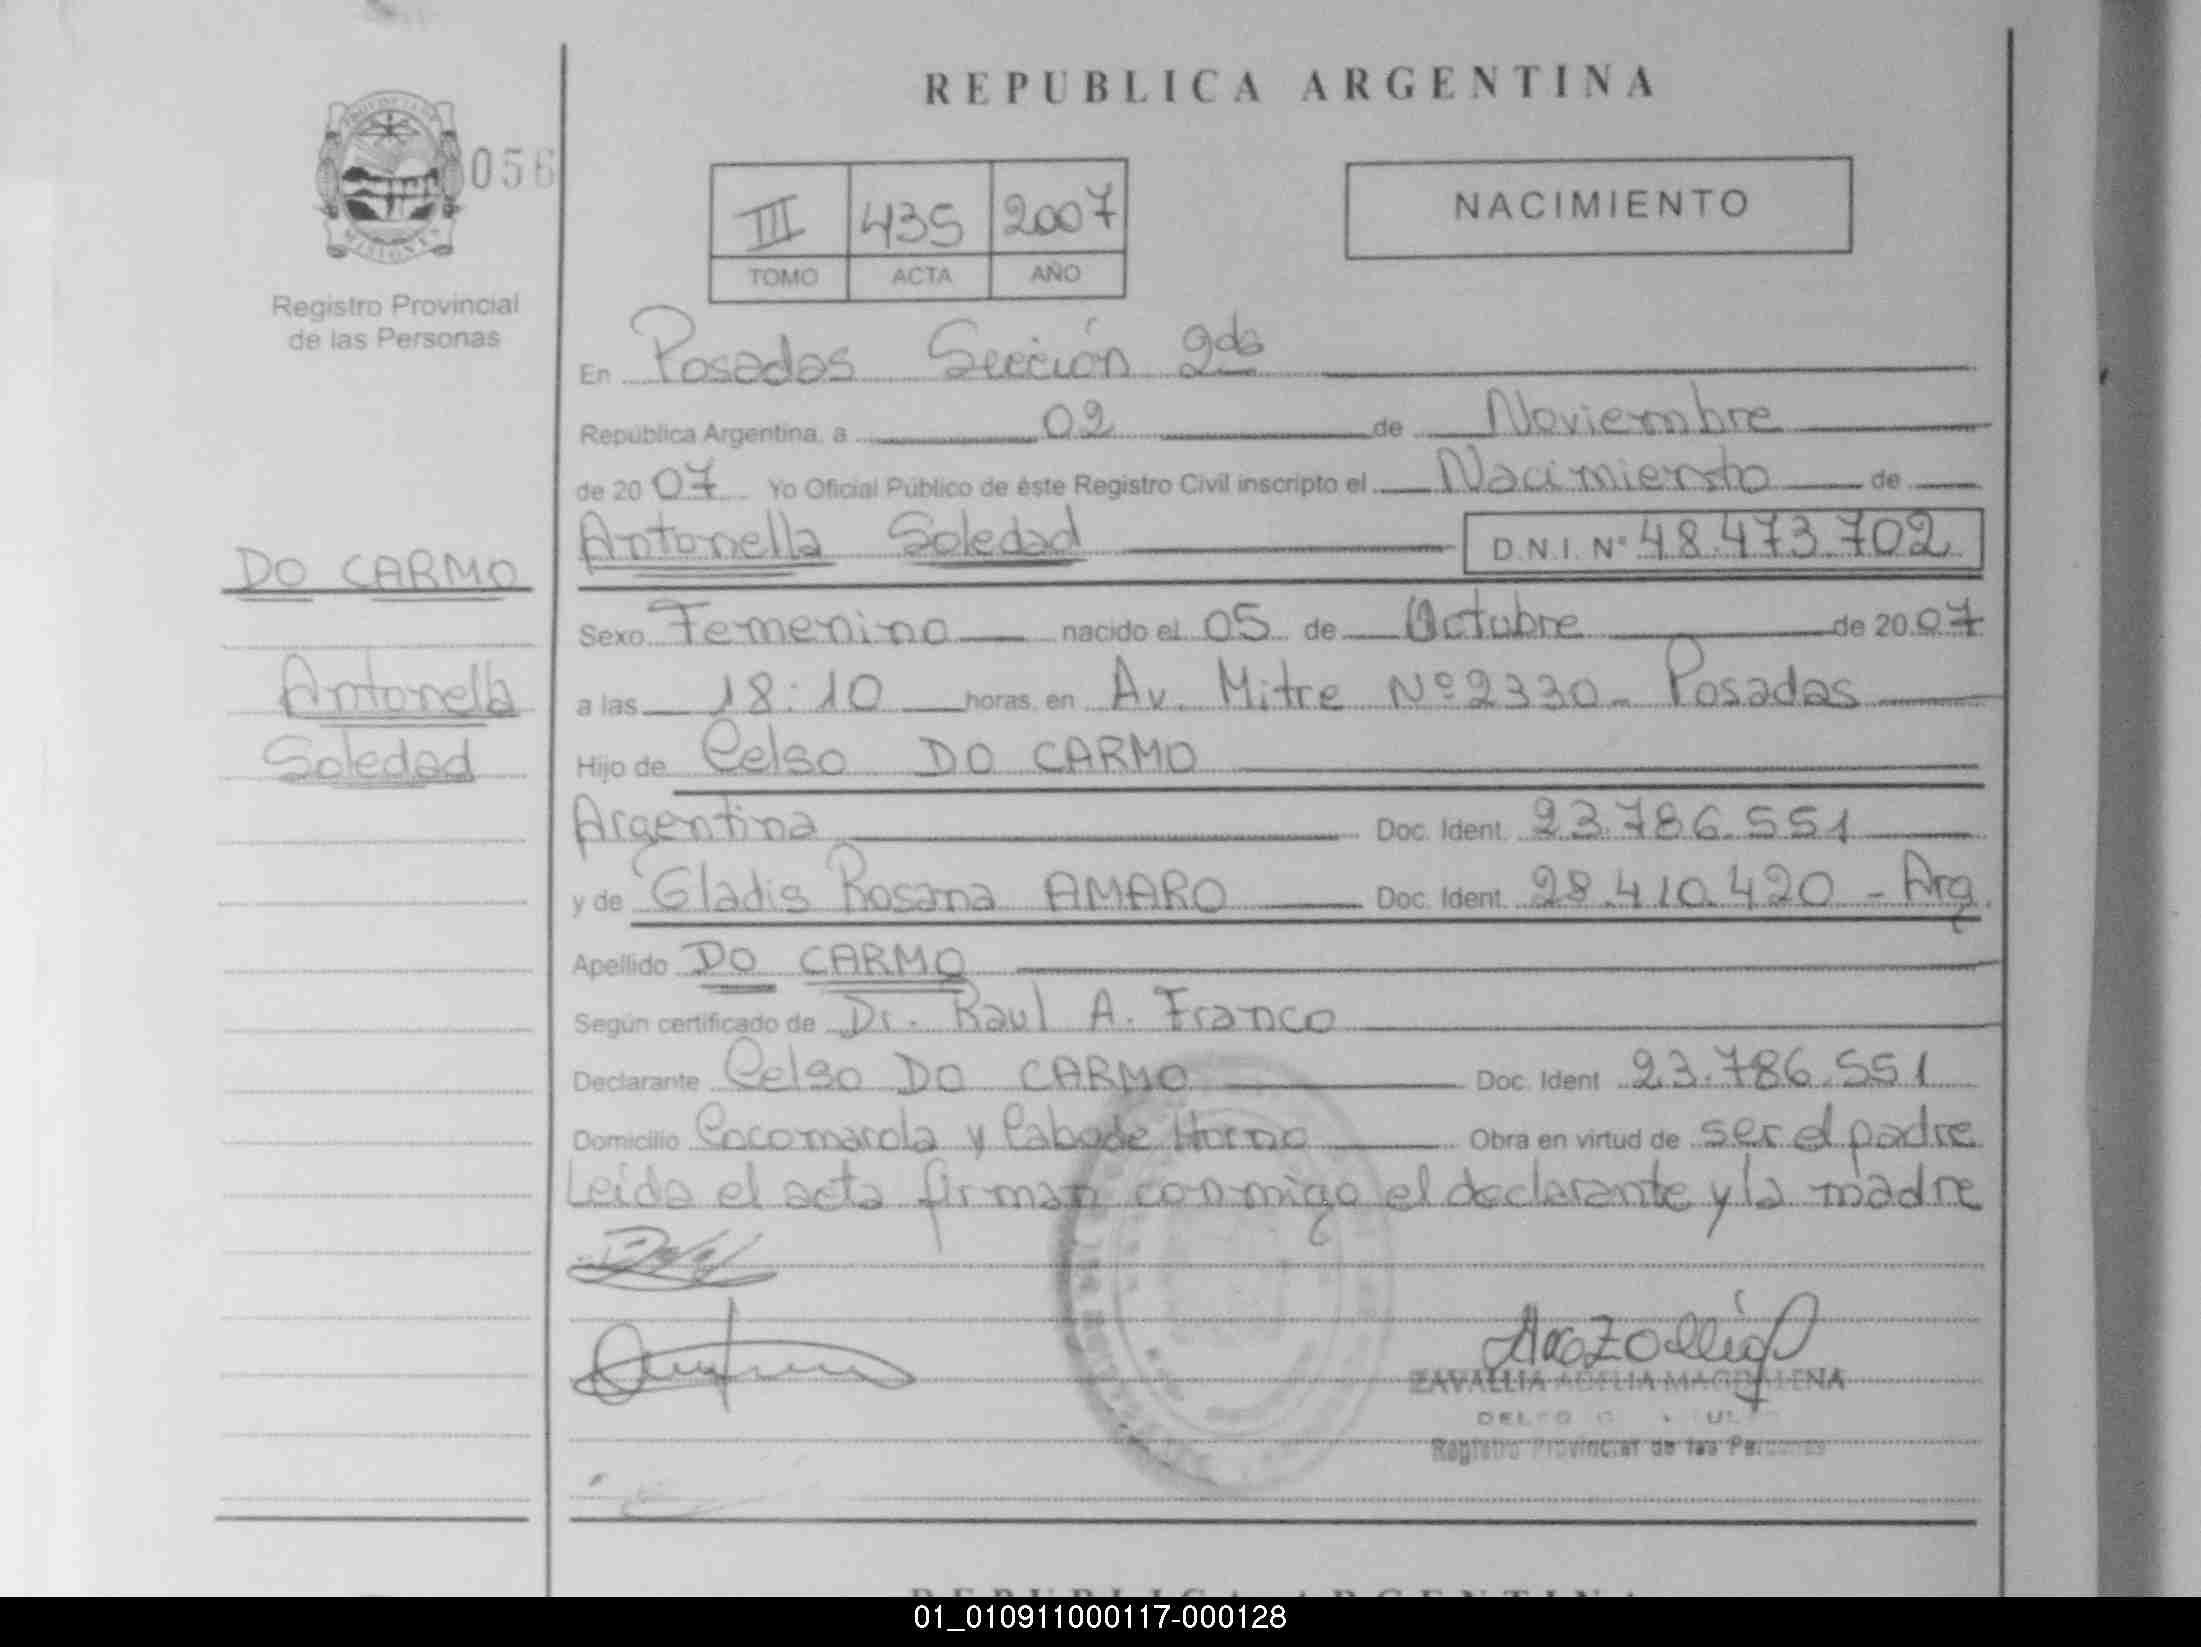 REPUBLICA ARGENTINA
PROVINCIA DE
MISIONES
056
Registro Provincial
de las Personas
III 435 2007
TOMO ACTA AÑO
NACIMIENTO
En Posadas Sección 2da
República Argentina, a 02 de Noviembre
de 2007 Yo Oficial Público de éste Registro Civil inscripto el Nacimiento de
Antonella Soledad D.N.I. Nº 48.473.702
DO CARMO
Antonella
Soledad
Sexo Femenino nacido el 05 de Octubre de 2007
a las 18:10 horas, en Av. Mitre Nº 2330- Posadas
Hijo de Celso DO CARMO
Argentina Doc. Ident. 23.786.551
y de Gladis Rosana AMARO Doc. Ident. 28.410.420 - Arg.
Apellido DO CARMO
Según certificado de Dr. Raul A. Franco
Declarante Celso DO CARMO Doc. Ident 23.786.551
Domicilio Cocomarola y Cabo de Horno Obra en virtud de ser el padre
Leida el acta firman conmigo el declarante y la madre
ZAVALLIA ADELIA MAGDALENA
Registro Provincial de las Personas
01_010911000117-000128